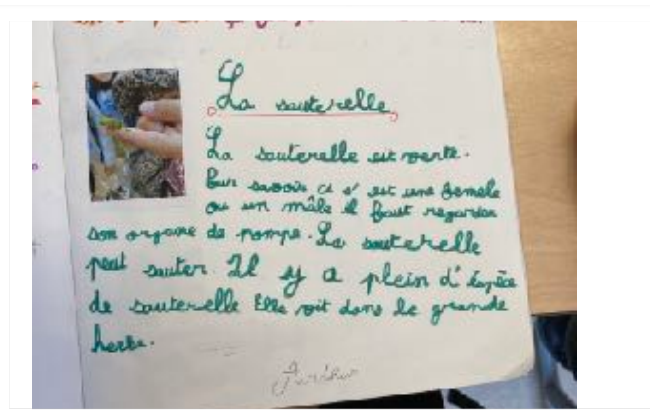 La sauterelle
La sauterelle est verte.
Pour savoir ci s' est une femele
ou un mâle il faut regarder
son organe de pompe. La sauterelle
peut sauter. Il y a plein d'éspèce
de sauterelle Elle voit dans le grande
herbe.